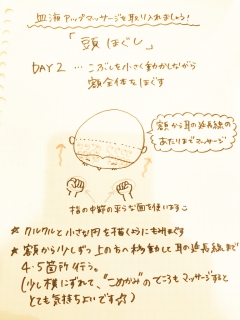 血液アップマッサージも取り入れましょう!
「頭ほぐし」
DAY2 … こぶしを小さく動かしながら
額全体をほぐす
額から耳の延長線の
あたりまでマッサージ
指の中節の平らな面を使います
★ クルクルと小さな円を描くようにもみほぐす
★ 額から少しずつ上の方へ移動して耳の延長線まで
4・5箇所行う。
(少し横にずれて、"こめかみ"のところもマッサージすると
とても気持ちよいです☆)